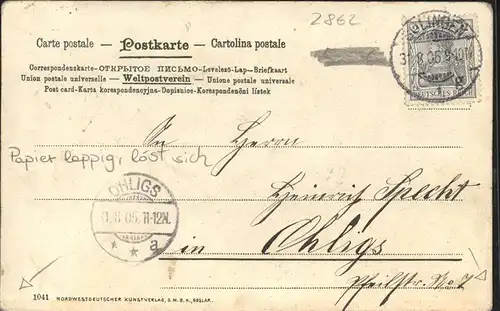 2862
Carte postale — Postkarte — Cartolina postale
Correspondenzkarte – ОТКРЫТОЕ ПИСЬМО – Levelező-Lap – Briefkaart
Union postale universelle – Weltpostverein – Unione postale universale
Post card – Karta korespondencyjna – Dopisnice – Korespondenční lístek
SOLINGEN
DEUTSCHES REICH
An Herrn
Papier lappig, löst sich
OHLIGS
05. 11-12N.
* * a
Heinrich Specht
in Ohligs
Pfeilstr. No 7
1041 NORDWESTDEUTSCHER KUNSTVERLAG, G.M.B.H., GOSLAR.